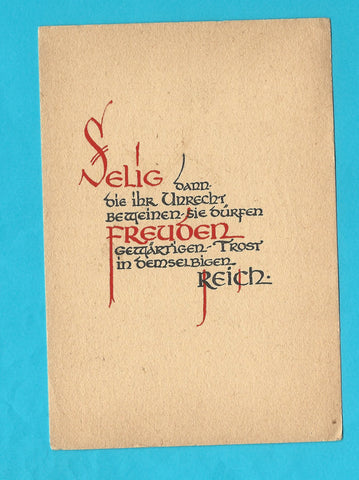 Selig dann
die ihr Unrecht
beweinen. Sie dürfen
FREUDEN
gewärtigen - Trost
in demselbigen
REICH.